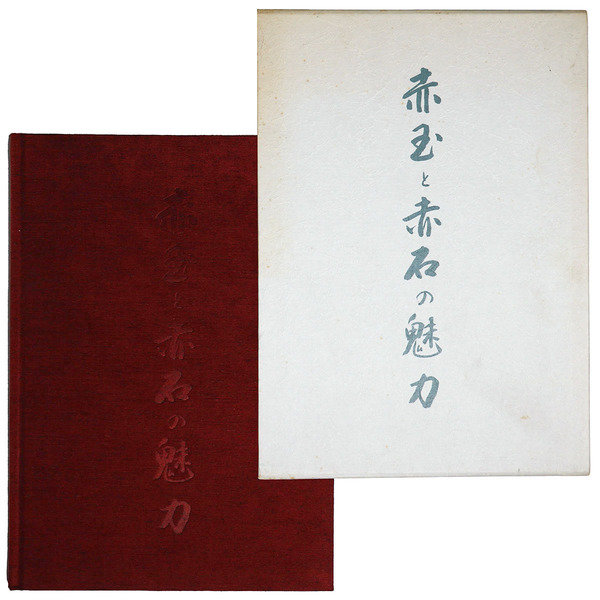 赤玉と赤石の魅力
赤玉と赤石の魅力